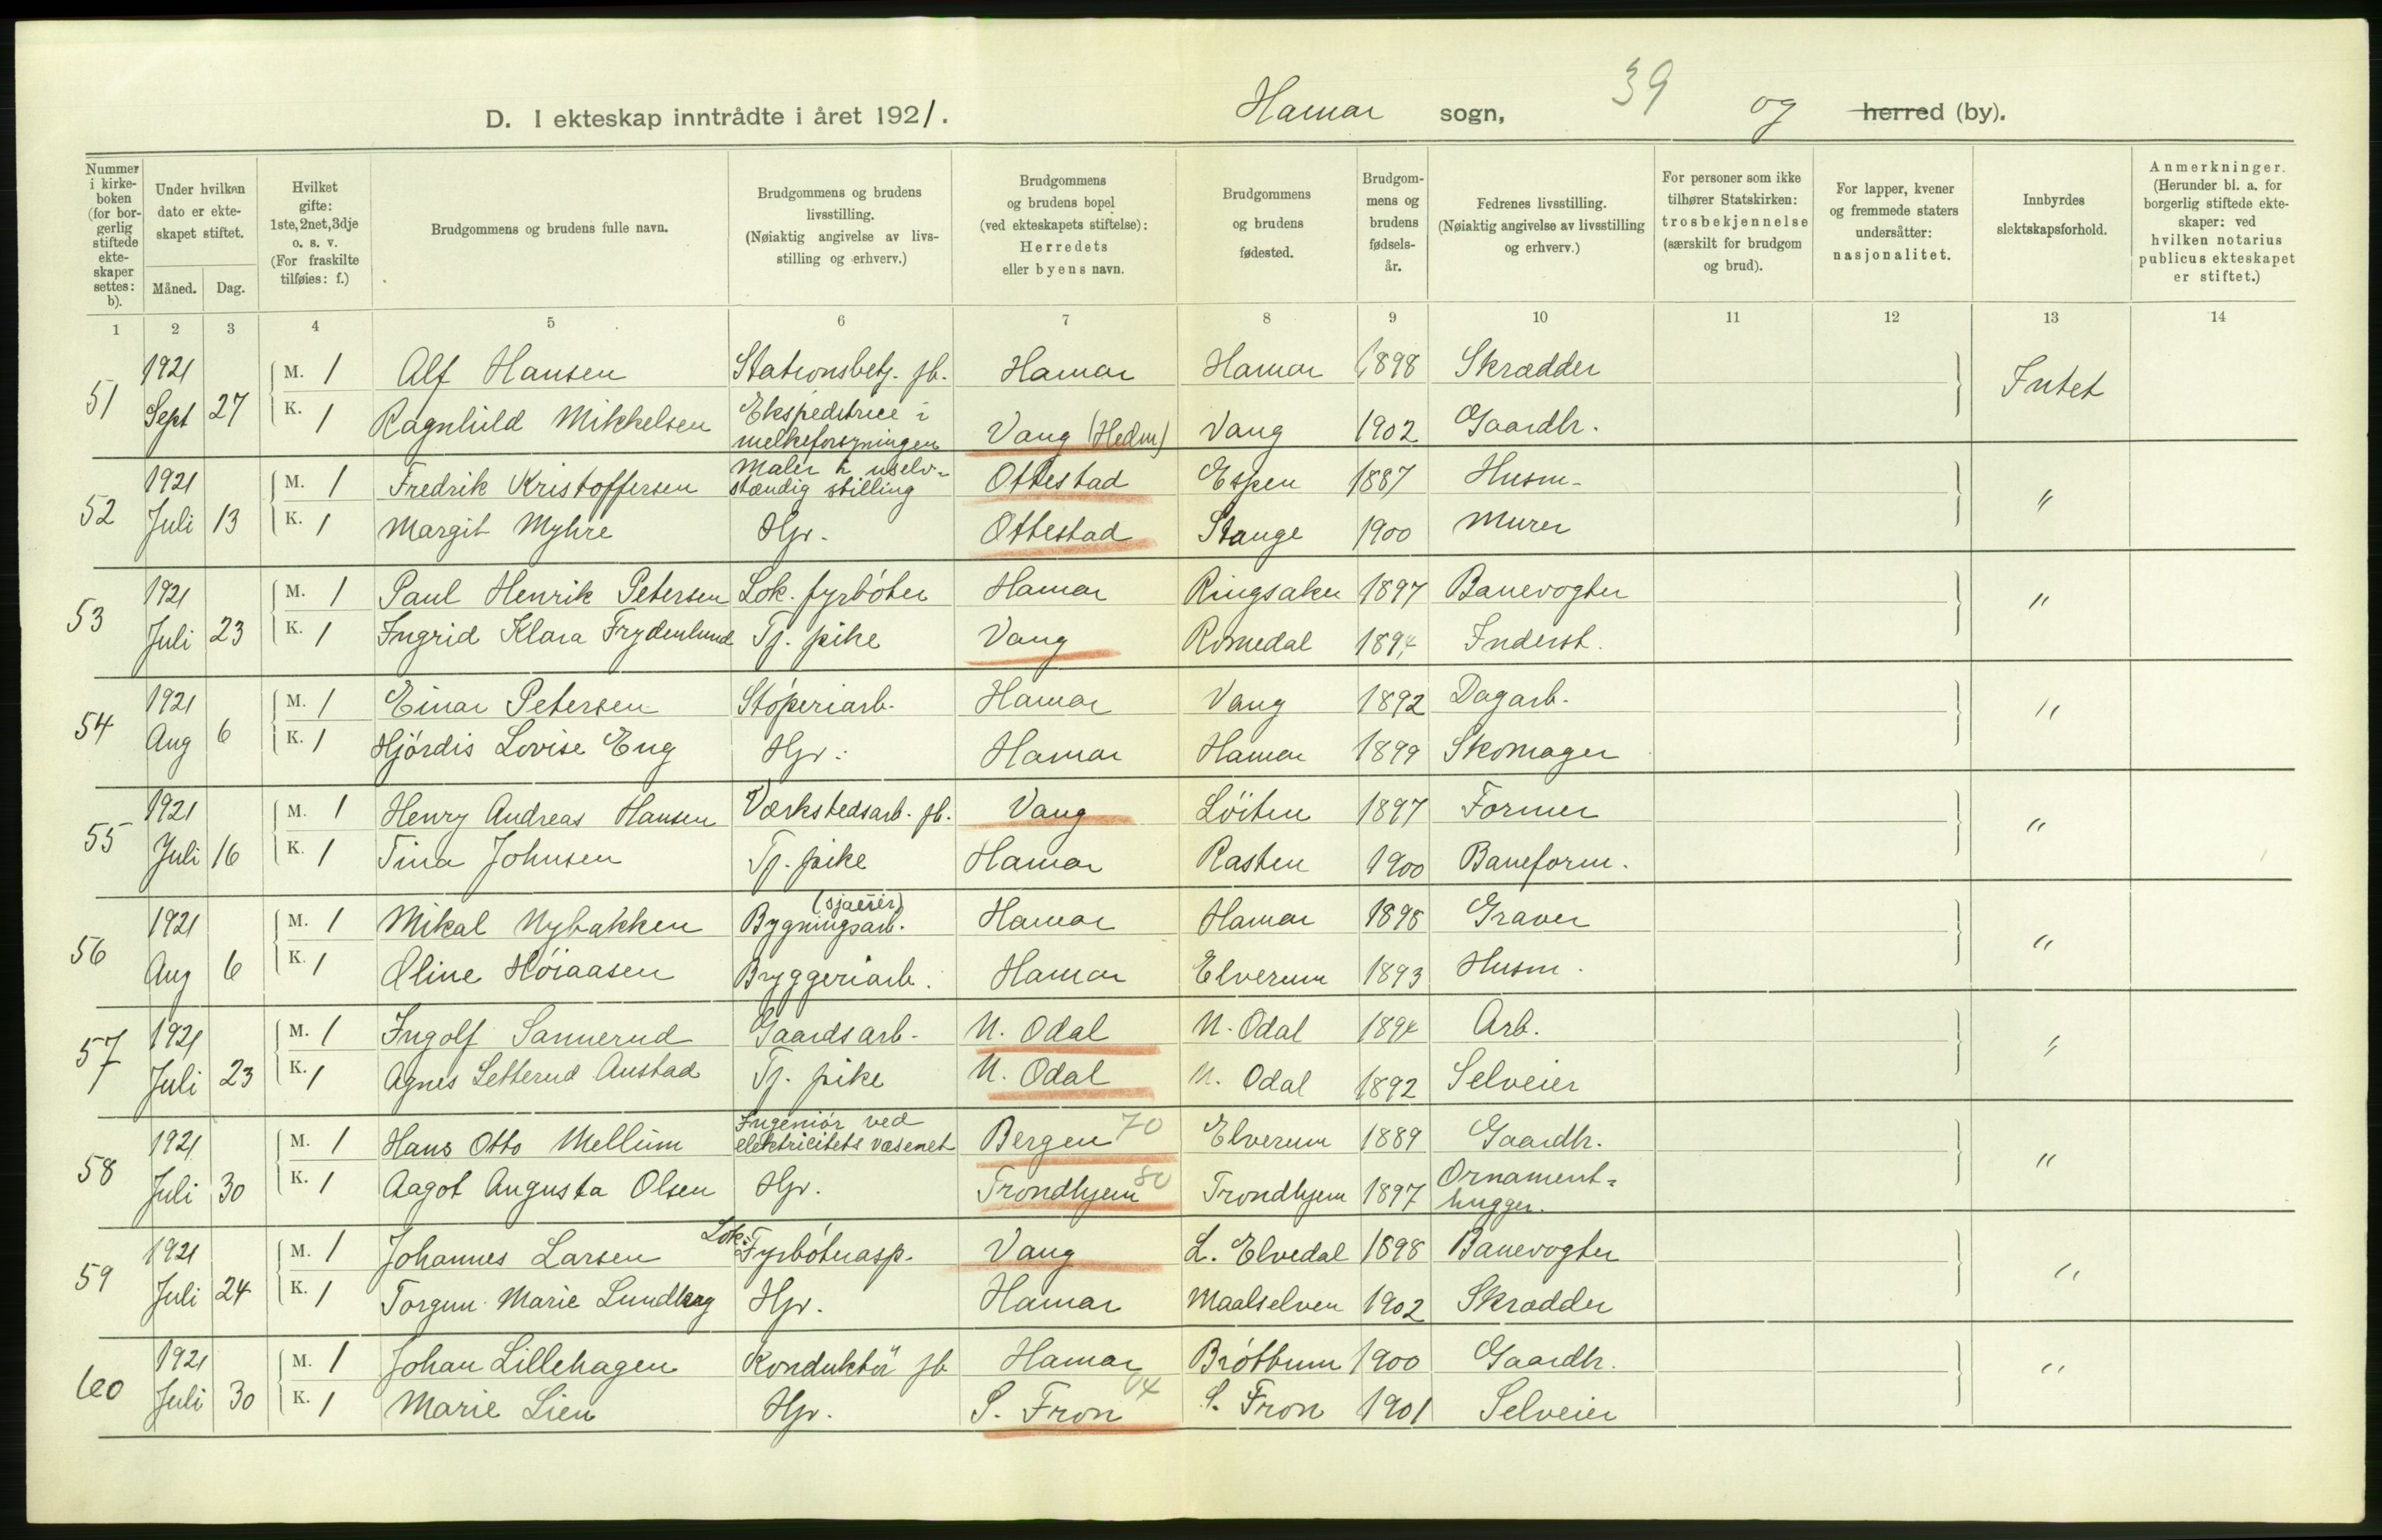 D. I ekteskap inntrådte i året 1921. Hamar sogn, 39 og herred (by).
Nummer i kirke-boken (for bor-gerlig stiftede ekte-skaper settes: b).
Under hvilken dato er ekte-skapet stiftet.
Måned. Dag.
Hvilket gifte: 1ste, 2net, 3dje o. s. v. (For fraskilte tilføies: f.)
Brudgommens og brudens fulle navn.
Brudgommens og brudens livsstilling. (Nøiaktig angivelse av livs-stilling og erhverv.)
Brudgommens og brudens bopel (ved ekteskapets stiftelse): Herredets eller byens navn.
Brudgommens og brudens fødested.
Brudgom-mens og brudens fødsels-år.
Fedrenes livsstilling. (Nøiaktig angivelse av livsstilling og erhverv.)
For personer som ikke tilhører Statskirken: trosbekjennelse (særskilt for brudgom og brud).
For lapper, kvener og fremmede staters undersåtter: nasjonalitet.
Innbyrdes slektskapsforhold.
Anmerkninger. (Herunder bl. a. for borgerlig stiftede ekte-skaper: ved hvilken notarius publicus ekteskapet er stiftet.)
1 2 3 4 5 6 7 8 9 10 11 12 13 14
51 1921 Sept 27 M. 1 Alf Hansen Stationsbetj. jb. Hamar Hamar 1898 Skrædder Intet
K. 1 Ragnhild Mikkelsen Ekspeditrice i melkeforsyningen Vang (Hedm) Vang 1902 Gaardbr.
52 1921 Juli 13 M. 1 Fredrik Kristoffersen Maler i uselv-stændig stilling Ottestad Espen 1887 Husm. "
K. 1 Margit Myhre Hjv. Ottestad Stange 1900 Murer
53 1921 Juli 23 M. 1 Paul Henrik Petersen Lok. fyrbóter Hamar Ringsaker 1897 Banevogter "
K. 1 Ingrid Klara Frydenlund Tj. pike Vang Romedal 1894 Inderst.
54 1921 Aug 6 M. 1 Einar Petersen Stóperiarb. Hamar Vang 1892 Dagarb. "
K. 1 Hjórdis Lovise Eng Hjv. Hamar Hamar 1899 Skomager
55 1921 Juli 16 M. 1 Henry Andreas Hansen Værkstedsarb. jb. Vang Löiten 1897 Former "
K. 1 Tina Johnsen Tj. pike Hamar Rasten 1900 Baneform.
56 1921 Aug 6 M. 1 Mikal Nybakken Bygningsarb. Hamar Hamar 1898 Graver "
K. 1 Oline Hóiaasen Bryggeriarb. Hamar Elverum 1893 Husm.
57 1921 Juli 23 M. 1 Ingolf Sannerud Gaardsarb. N. Odal N. Odal 1894 Arb. "
K. 1 Agnes Setterud Austad Tj. pike N. Odal N. Odal 1892 Selveier
58 1921 Juli 30 M. 1 Hans Otto Mellum Ingeniór ved elektricitets væsenet Bergen 70 Elverum 1889 Gaardbr. "
K. 1 Aagot Augusta Olsen Hjv. Trondhjem 80 Trondhjem 1897 Ornament-hugger.
59 1921 Juli 24 M. 1 Johannes Larsen Lok. Fyrbóterasp. Vang L. Elvedal 1898 Banevogter "
K. 1 Torgun Marie Lundberg Hjv. Hamar Maalselven 1902 Skrædder
60 1921 Juli 30 M. 1 Johan Lillehagen Konduktör jb Hamar Bróttum 1900 Gaardbr. "
K. 1 Marie Lien Hjv. S. Fron S. Fron 1901 Selveier